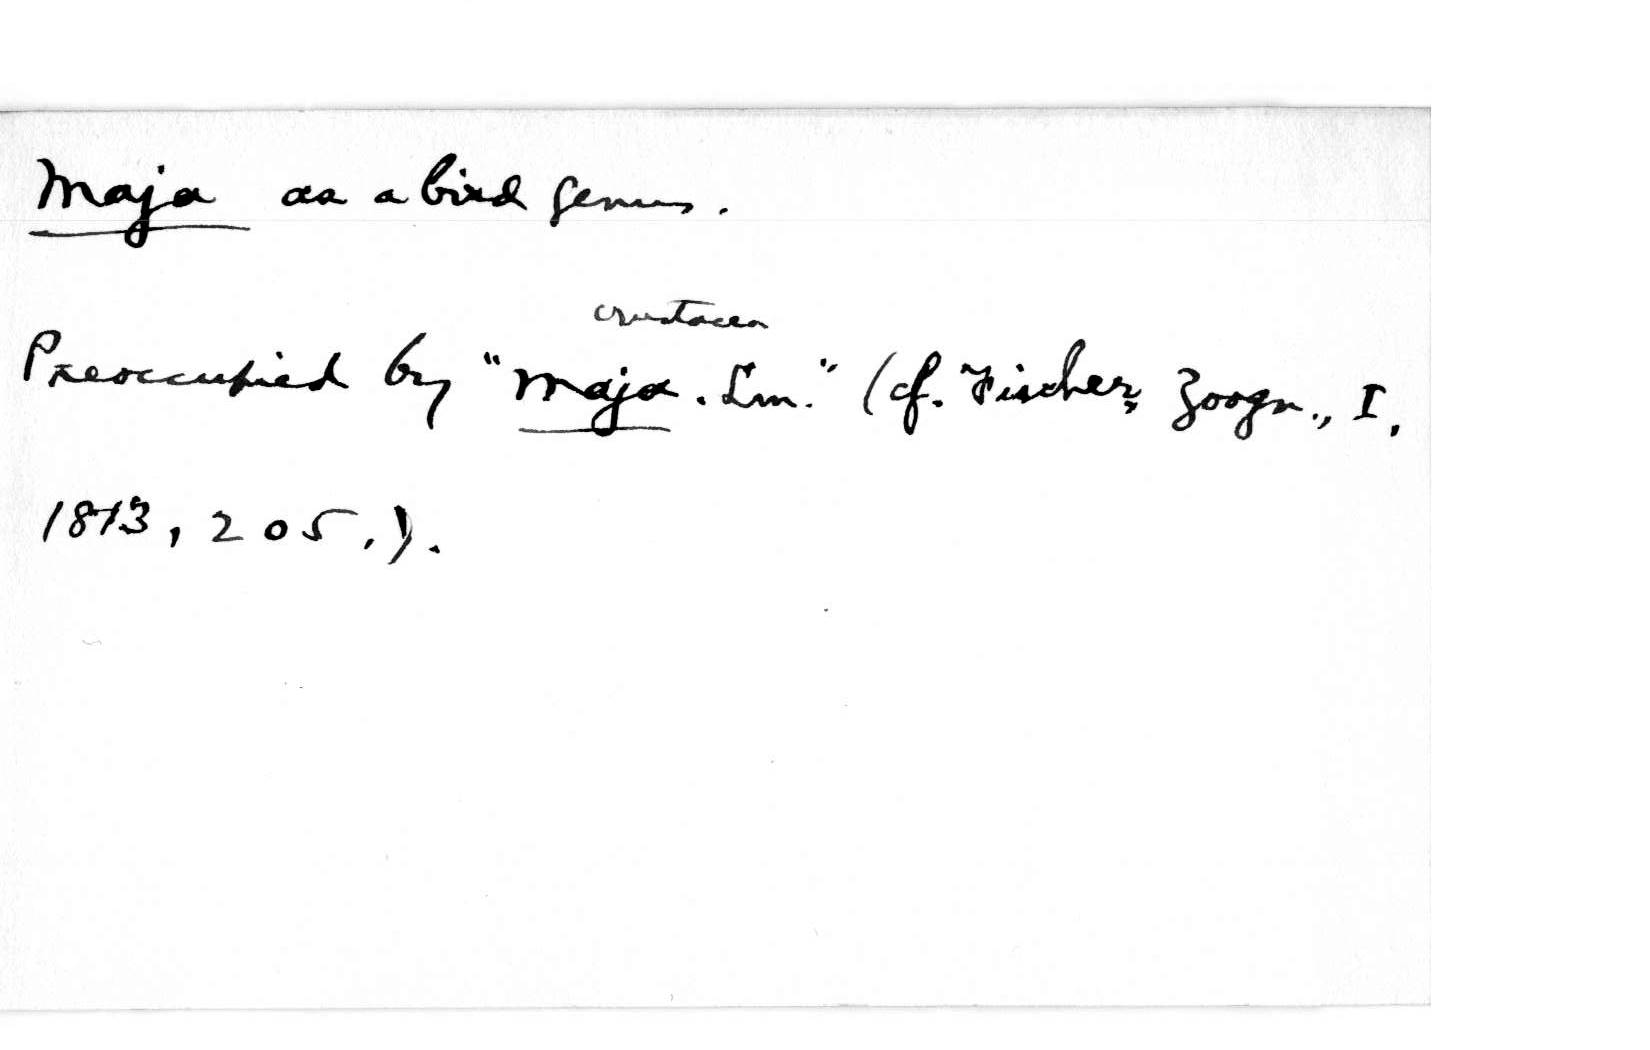 Maja as a bird genus.
crustacea
Preoccupied by "Maja. Lm." (cf. Fischer, Zoogn., I,
1813, 205,).